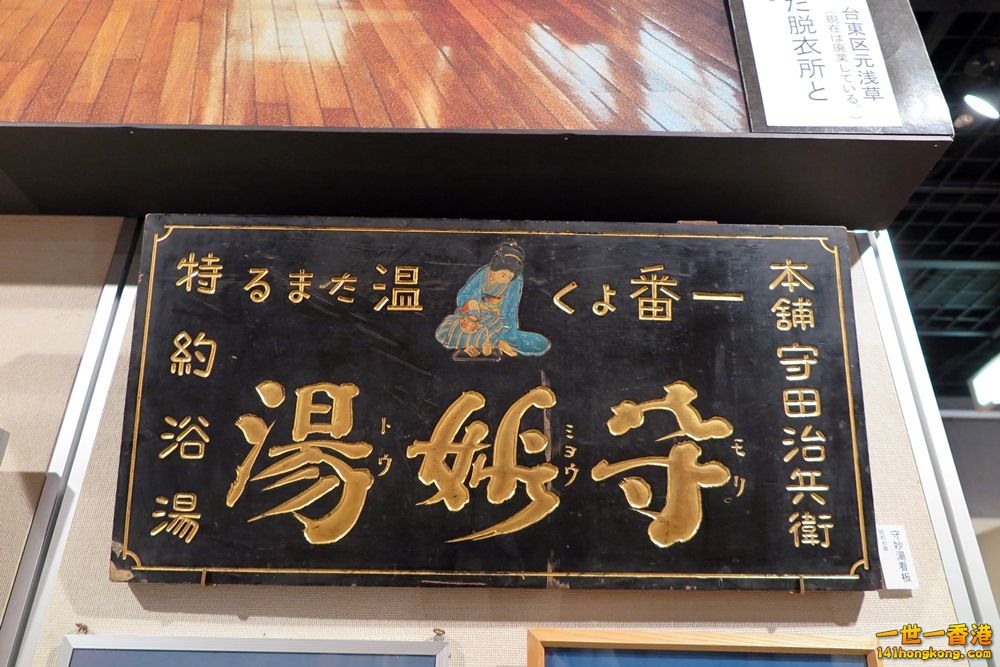 台東区元浅草
（現在は廃業している。）
た脱衣所と
本舗守田治兵衛
一番よく温たまる
守妙湯
モリ
ミヨウ
トウ
特約浴湯
守妙湯看板
一世一香港
141hongkong.com